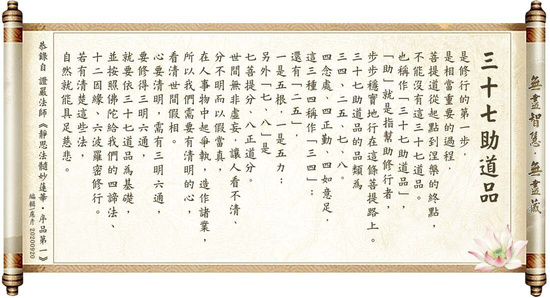 無盡智慧．無盡藏
三十七助道品
是修行的第一步，
是相當重要的過程，
菩提道從起點到涅槃的終點，
不能沒有這三十七道品。
也稱作「三十七助道品」，
「助」就是指幫助修行者，
步步穩實地行在這條菩提路上。
三十七助道品的品類為
三四、二五、七、八。
四念處、四正勤、四如意足，
這三種四稱作「三四」；
還有「二五」，
一是五根，一是五力；
另外「七、八」是
七菩提分、八正道分。
世間無非虛妄，讓人看不清、
分不明而以假當真，
在人事物中起爭執，造作諸業，
所以我們需要有清明的心，
看清世間假相。
心要清明，需有三明六通，
要修得三明六通，
就要依三十七道品為基礎，
並按照佛陀給我們的四諦法、
十二因緣、六波羅密修行。
若有清楚這些法，
自然就能具足慈悲。
恭錄自 證嚴法師《靜思法髓妙蓮華．序品第一》
編輯 20200920